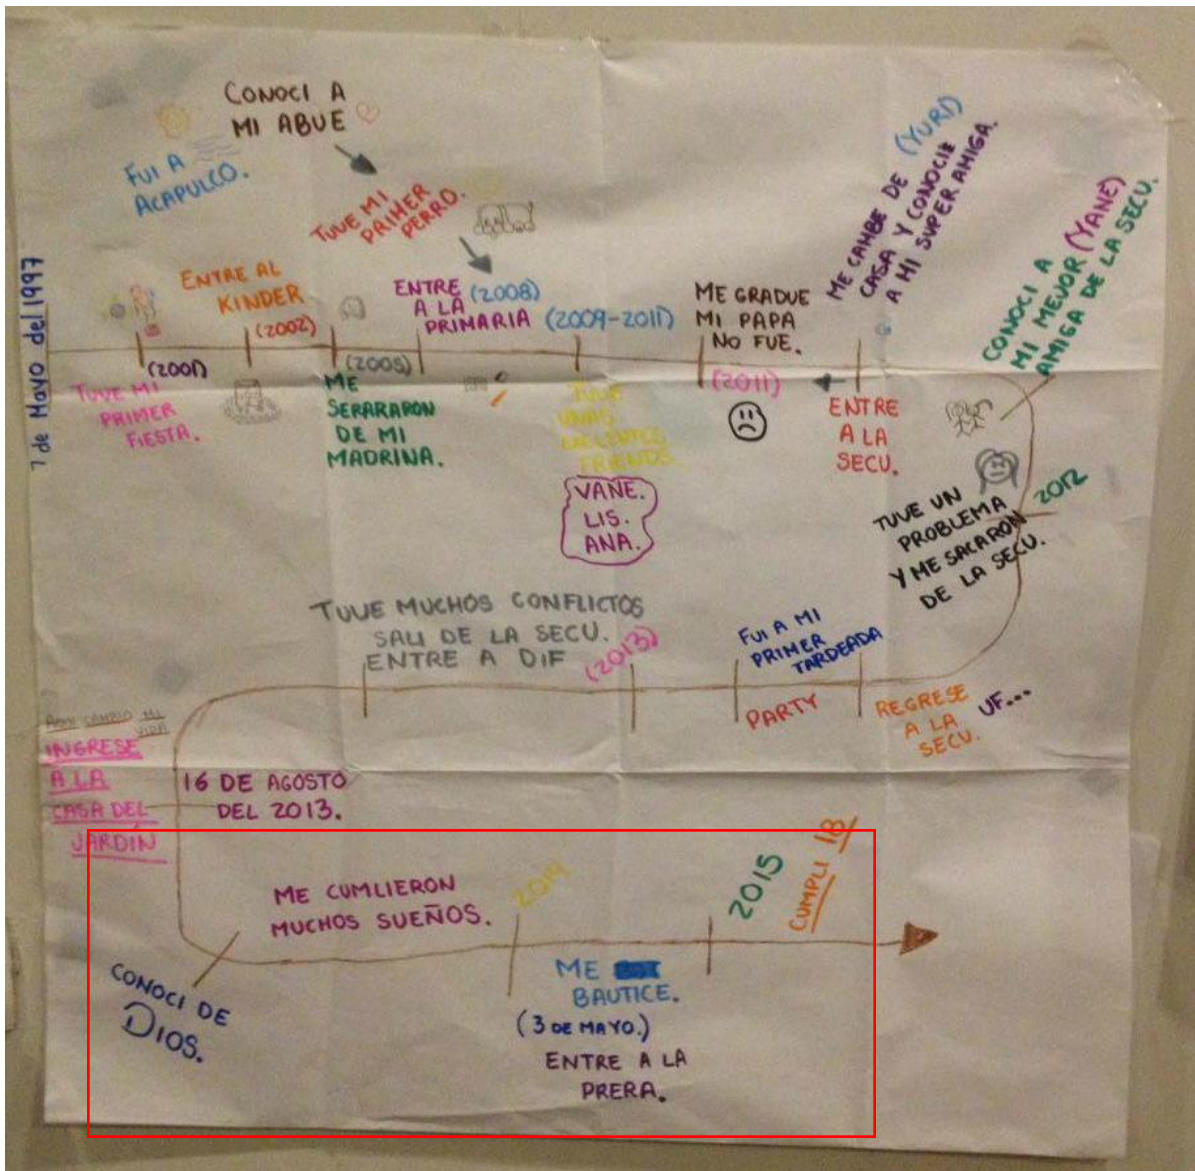 CONOCI A
MI ABUE
FUI A
ACAPULCO.
TUVE MI
PRIMER
PERRO.
7 de Mayo del 1997
ENTRE AL
KINDER
(2002)
ENTRE
A LA
PRIMARIA
(2008)
(2009-2011)
ME GRADUE
MI PAPA
NO FUE.
(2011)
ME CAMBE DE (YURI)
CASA Y CONOCI
A MI SUPER AMIGA.
CONOCI A
MI MEJOR (YANE)
AMIGA DE LA SECU.
(2001)
TUVE MI
PRIMER
FIESTA.
(2005)
ME
SERARARON
DE MI
MADRINA.
TUVE
UNAS
FRIENDS.
VANE.
LIS.
ANA.
ENTRE
A LA
SECU.
2012
TUVE UN
PROBLEMA
Y ME SACARON
DE LA SECU.
TUVE MUCHOS CONFLICTOS
SALI DE LA SECU.
ENTRE A DIF
(2013)
FUI A MI
PRIMER
TARDEADA
PARTY
REGRESE
A LA
SECU.
UF...
AQUI CAMBIO MI
VIDA
INGRESE
A LA
CASA DEL
JARDÍN
16 DE AGOSTO
DEL 2013.
ME CUMLIERON
MUCHOS SUEÑOS.
2014
2015
CUMPLI 18
CONOCI DE
DIOS.
ME
BAUTICE.
(3 DE MAYO.)
ENTRE A LA
PRERA.